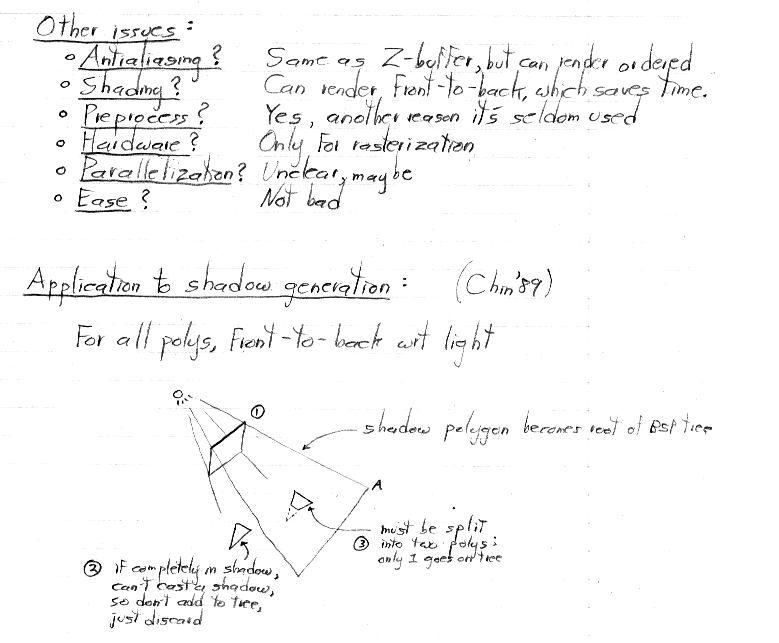 Other issues :
o Antialiasing ? Same as Z-buffer, but can render ordered
o Shading ? Can render front-to-back, which saves time.
o Preprocess ? Yes, another reason it's seldom used
o Hardware ? Only for rasterization
o Parallelization ? Unclear, maybe
o Ease ? Not bad
Application to shadow generation : (Chin '89)
For all polys, front-to-back wrt light
①
shadow polygon becomes root of BSP tree
A
③ must be split
into two polys;
only 1 goes on tree
② if completely in shadow,
can't cast a shadow,
so don't add to tree,
just discard